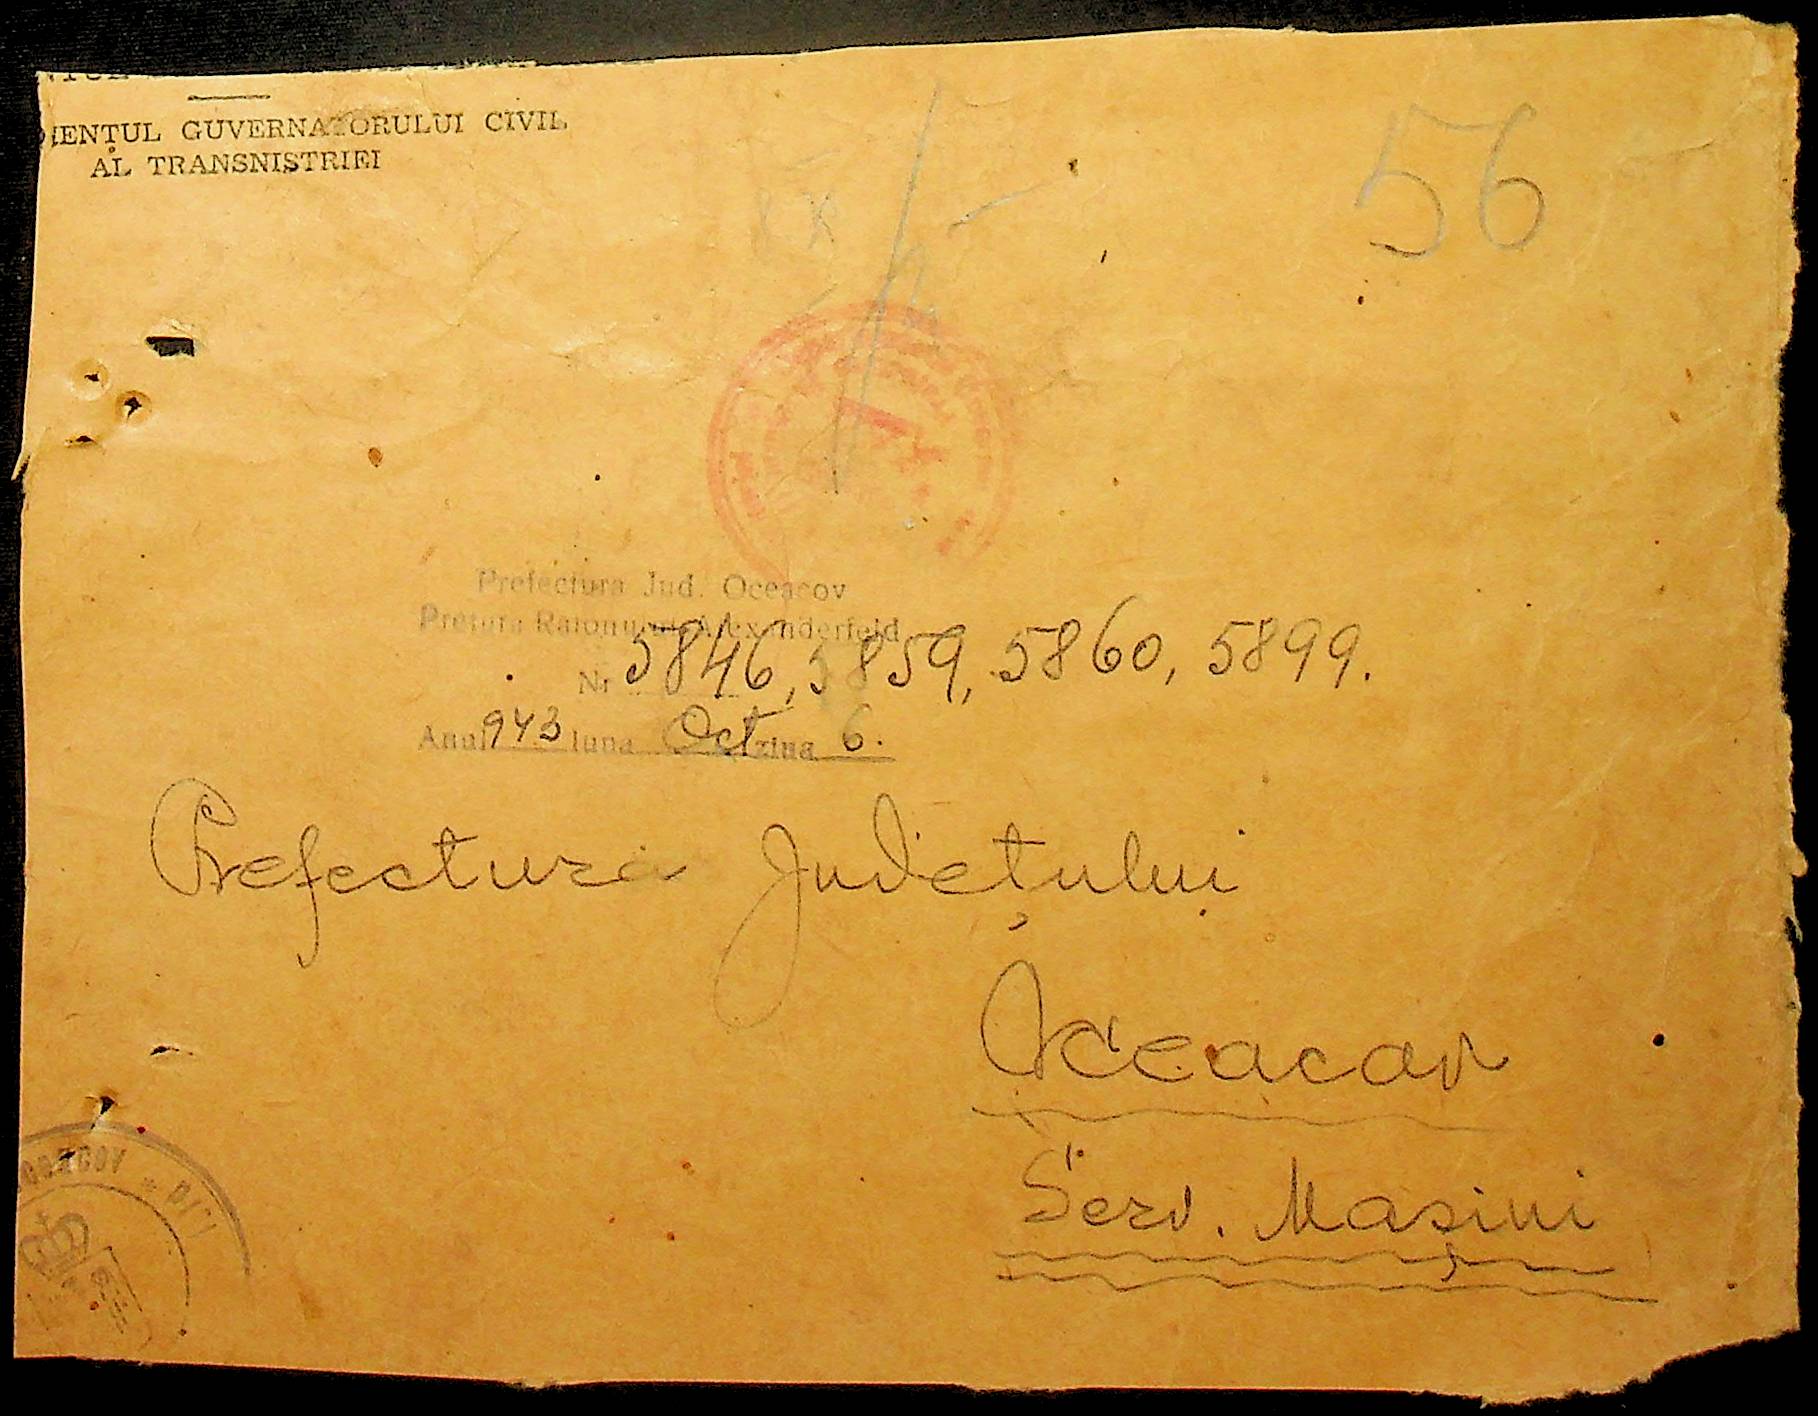 GUVERNATORULUI CIVIL
AL TRANSNISTRIEI
56
Prefectura Jud. Oceacov
Pretura Raionului Alexanderfeld
Nr 5846, 5859, 5860, 5899.
Anul 943 luna Oct ziua 6.
Prefectura Județului
Oceacov
Serv. Mașini